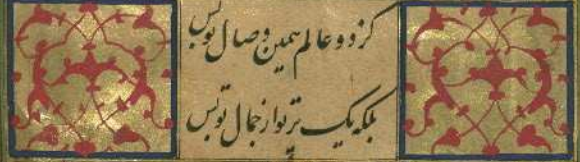 کز دو عالم همین وصال تو بس
بلکه یک پرتو از جمال تو بس